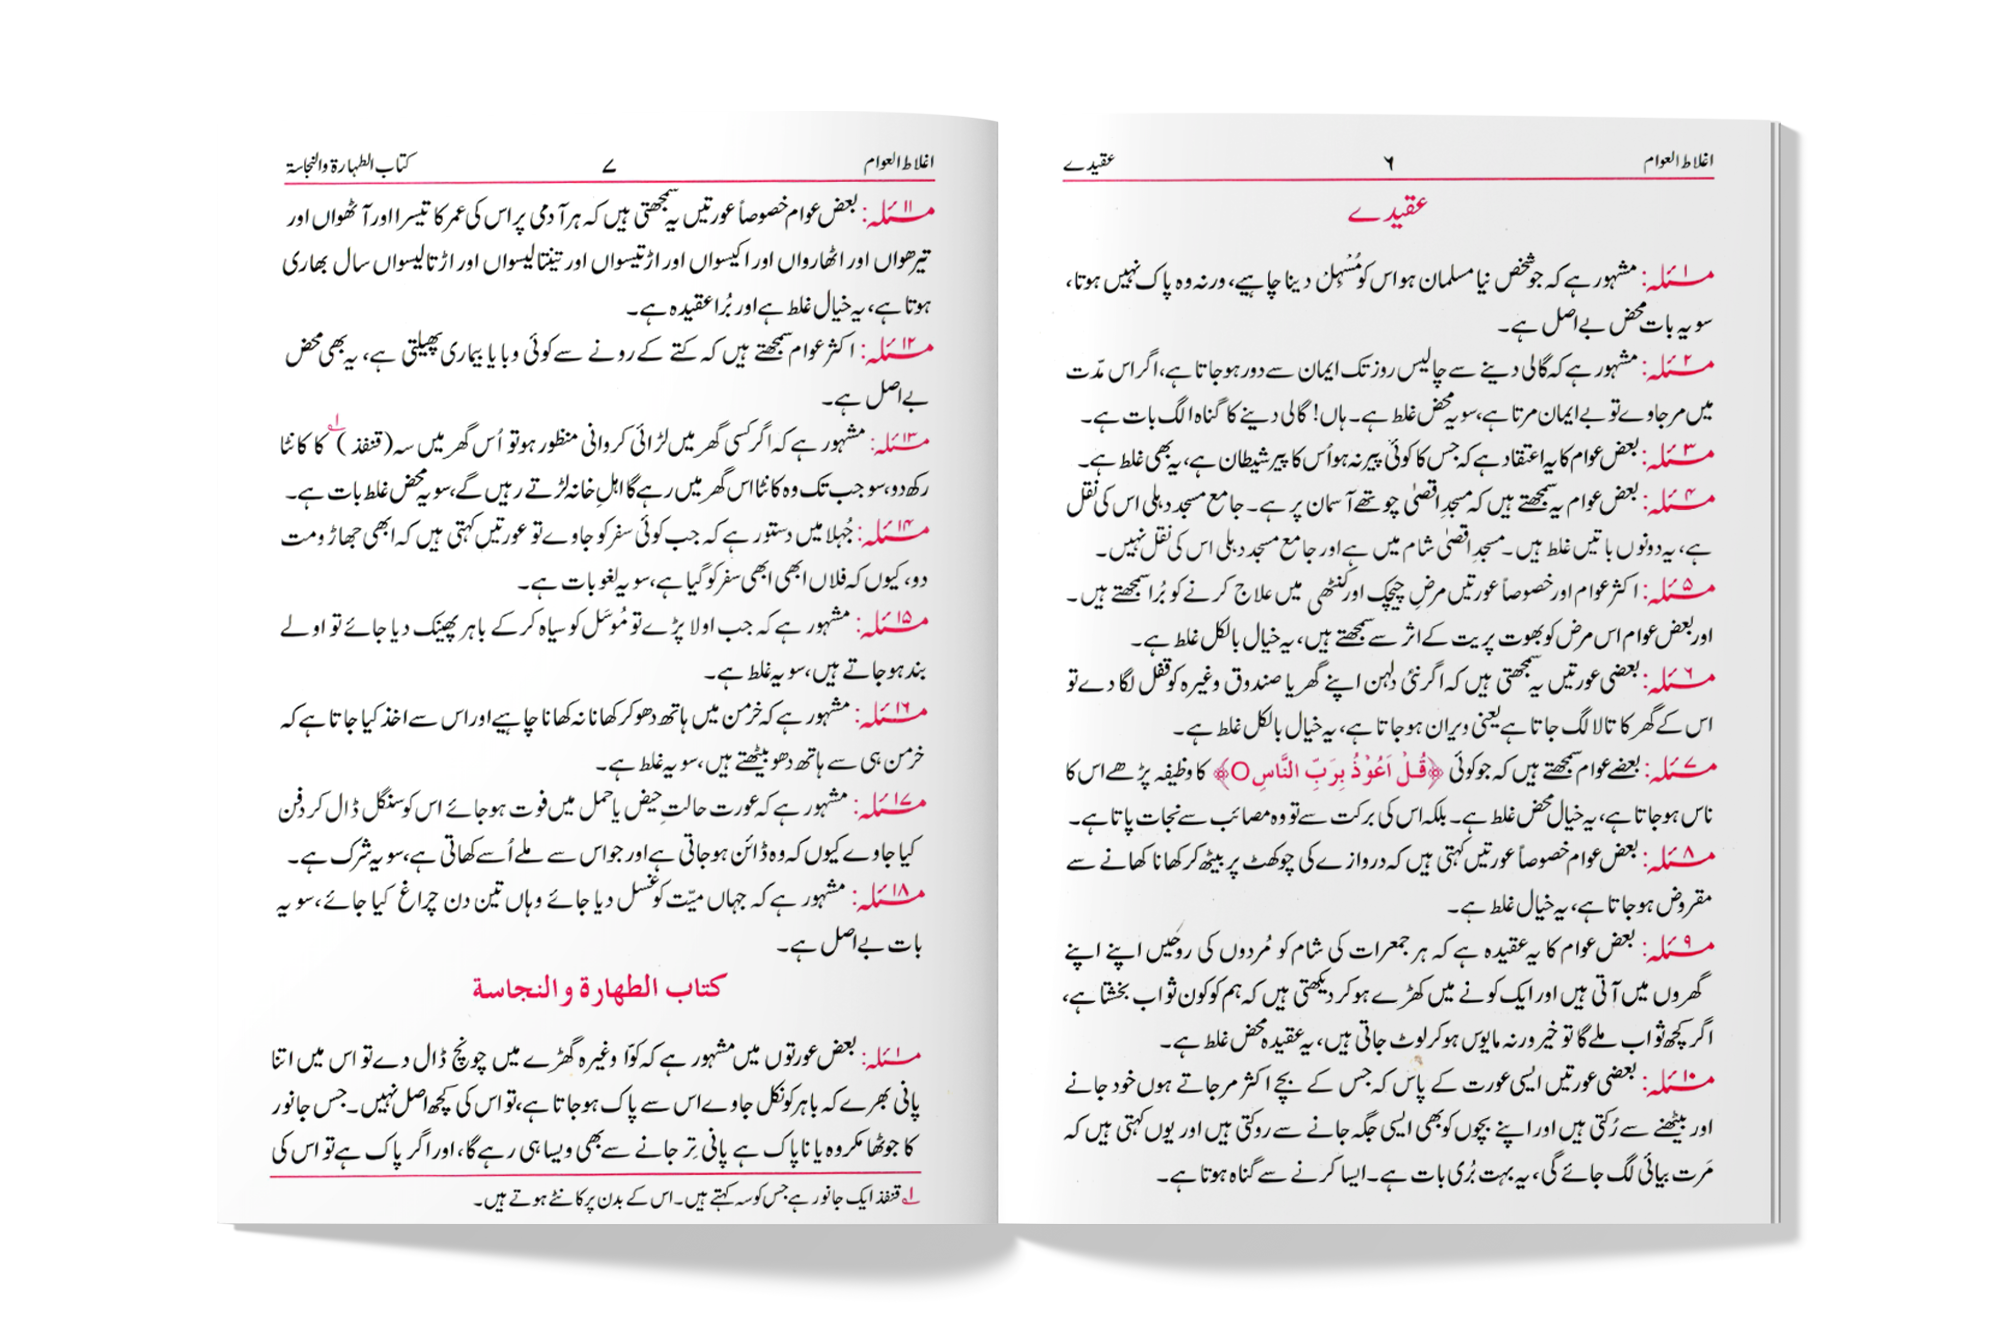 اغلاط العوام ۶ عقیدے
عقیدے
مسئلہ ۱: مشہور ہے کہ جو شخص نیا مسلمان ہو اس کو مُسْہِلْ دینا چاہیے، ورنہ وہ پاک نہیں ہوتا،
سو یہ بات محض بے اصل ہے۔
مسئلہ ۲: مشہور ہے کہ گالی دینے سے چالیس روز تک ایمان سے دور ہوجاتا ہے، اگر اس مدّت
میں مرجاوے تو بے ایمان مرتا ہے، سو یہ محض غلط ہے۔ ہاں! گالی دینے کا گناہ الگ بات ہے۔
مسئلہ ۳: بعض عوام کا یہ اعتقاد ہے کہ جس کا کوئی پیر نہ ہو اُس کا پیر شیطان ہے، یہ بھی غلط ہے۔
مسئلہ ۴: بعض عوام یہ سمجھتے ہیں کہ مسجدِ اقصیٰ چوتھے آسمان پر ہے۔ جامع مسجد دہلی اس کی نقل
ہے، یہ دونوں باتیں غلط ہیں۔ مسجدِ اقصیٰ شام میں ہے اور جامع مسجد دہلی اس کی نقل نہیں۔
مسئلہ ۵: اکثر عوام اور خصوصاً عورتیں مرضِ چیچک اور کنٹھی میں علاج کرنے کو بُرا سمجھتے ہیں۔
اور بعض عوام اس مرض کو بھوت پریت کے اثر سے سمجھتے ہیں، یہ خیال بالکل غلط ہے۔
مسئلہ ۶: بعضی عورتیں یہ سمجھتی ہیں کہ اگر نئی دلہن اپنے گھر یا صندوق وغیرہ کو قفل لگا دے تو
اس کے گھر کا تالا لگ جاتا ہے یعنی ویران ہوجاتا ہے، یہ خیال بالکل غلط ہے۔
مسئلہ ۷: بعضے عوام سمجھتے ہیں کہ جو کوئی ﴿قُلْ اَعُوْذُ بِرَبِّ النَّاسِ O﴾ کا وظیفہ پڑھے اس کا
ناس ہوجاتا ہے، یہ خیال محض غلط ہے۔ بلکہ اس کی برکت سے تو وہ مصائب سے نجات پاتا ہے۔
مسئلہ ۸: بعض عوام خصوصاً عورتیں کہتی ہیں کہ دروازے کی چوکھٹ پر بیٹھ کر کھانا کھانے سے
مقروض ہوجاتا ہے، یہ خیال غلط ہے۔
مسئلہ ۹: بعض عوام کا یہ عقیدہ ہے کہ ہر جمعرات کی شام کو مُردوں کی روحیں اپنے اپنے
گھروں میں آتی ہیں اور ایک کونے میں کھڑے ہوکر دیکھتی ہیں کہ ہم کو کون ثواب بخشتا ہے،
اگر کچھ ثواب ملے گا تو خیر ورنہ مایوس ہوکر لوٹ جاتی ہیں، یہ عقیدہ محض غلط ہے۔
مسئلہ ۱۰: بعضی عورتیں ایسی عورت کے پاس کہ جس کے بچے اکثر مرجاتے ہوں خود جانے
اور بیٹھنے سے رُکتی ہیں اور اپنے بچوں کو بھی ایسی جگہ جانے سے روکتی ہیں اور یوں کہتی ہیں کہ
مَرت بیائی لگ جائے گی، یہ بہت بُری بات ہے۔ ایسا کرنے سے گناہ ہوتا ہے۔
اغلاط العوام ۷ کتاب الطہارۃ والنجاسۃ
مسئلہ ۱۱: بعض عوام خصوصاً عورتیں یہ سمجھتی ہیں کہ ہر آدمی پر اس کی عمر کا تیسرا اور آٹھواں اور
تیرھواں اور اٹھارواں اور اکیسواں اور اڑتیسواں اور تینتالیسواں اور اڑتالیسواں سال بھاری
ہوتا ہے، یہ خیال غلط ہے اور بُرا عقیدہ ہے۔
مسئلہ ۱۲: اکثر عوام سمجھتے ہیں کہ کتے کے رونے سے کوئی وبا یا بیماری پھیلتی ہے، یہ بھی محض
بے اصل ہے۔
مسئلہ ۱۳: مشہور ہے کہ اگر کسی گھر میں لڑائی کروانی منظور ہو تو اُس گھر میں سہ (قنفذ)۱ کا کانٹا
رکھ دو، سو جب تک وہ کانٹا اس گھر میں رہے گا اہلِ خانہ لڑتے رہیں گے، سو یہ محض غلط بات ہے۔
مسئلہ ۱۴: جُہلا میں دستور ہے کہ جب کوئی سفر کو جاوے تو عورتیں کہتی ہیں کہ ابھی جھاڑو مت
دو، کیوں کہ فلاں ابھی ابھی سفر کو گیا ہے، سو یہ لغو بات ہے۔
مسئلہ ۱۵: مشہور ہے کہ جب اولا پڑے تو مُوسَل کو سیاہ کرکے باہر پھینک دیا جائے تو اولے
بند ہوجاتے ہیں، سو یہ غلط ہے۔
مسئلہ ۱۶: مشہور ہے کہ خرمن میں ہاتھ دھو کر کھانا نہ کھانا چاہیے اور اس سے اخذ کیا جاتا ہے کہ
خرمن ہی سے ہاتھ دھو بیٹھتے ہیں، سو یہ غلط ہے۔
مسئلہ ۱۷: مشہور ہے کہ عورت حالتِ حیض یا حمل میں فوت ہوجائے اس کو سنگل ڈال کر دفن
کیا جاوے کیوں کہ وہ ڈائن ہوجاتی ہے اور جو اس سے ملے اُسے کھاتی ہے، سو یہ شرک ہے۔
مسئلہ ۱۸: مشہور ہے کہ جہاں میّت کو غسل دیا جائے وہاں تین دن چراغ کیا جائے، سو یہ
بات بے اصل ہے۔
کتاب الطهارة والنجاسة
مسئلہ ۱: بعض عورتوں میں مشہور ہے کہ کوّا وغیرہ گھڑے میں چونچ ڈال دے تو اس میں اتنا
پانی بھرے کہ باہر کو نکل جاوے اس سے پاک ہوجاتا ہے، تو اس کی کچھ اصل نہیں۔ جس جانور
کا جوٹھا مکروہ یا ناپاک ہے پانی تِر جانے سے بھی ویسا ہی رہے گا، اور اگر پاک ہے تو اس کی
۱ قنفذ ایک جانور ہے جس کو سہ کہتے ہیں۔ اس کے بدن پر کانٹے ہوتے ہیں۔